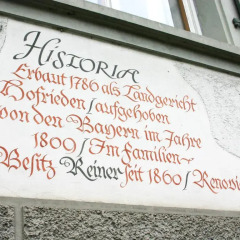 HISTORIA
Erbaut 1786 als Landgericht
Hofrieden / aufgehoben
von den Bayern im Jahre
1800 / Im Familien-
Besitz Reiner seit 1860 / Renovi